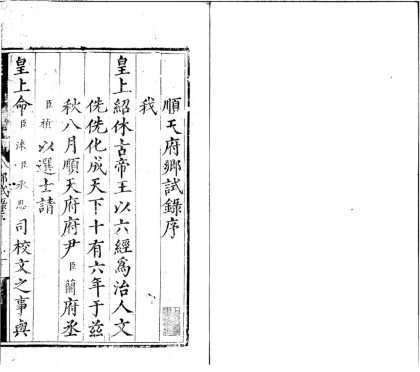 順天府鄉試錄序
我
皇上紹休古帝王以六經為治人文
侁侁化成天下十有六年于茲
秋八月順天府府尹臣蘭府丞
臣禎以選士請
皇上命臣淶臣承恩司校文之事與